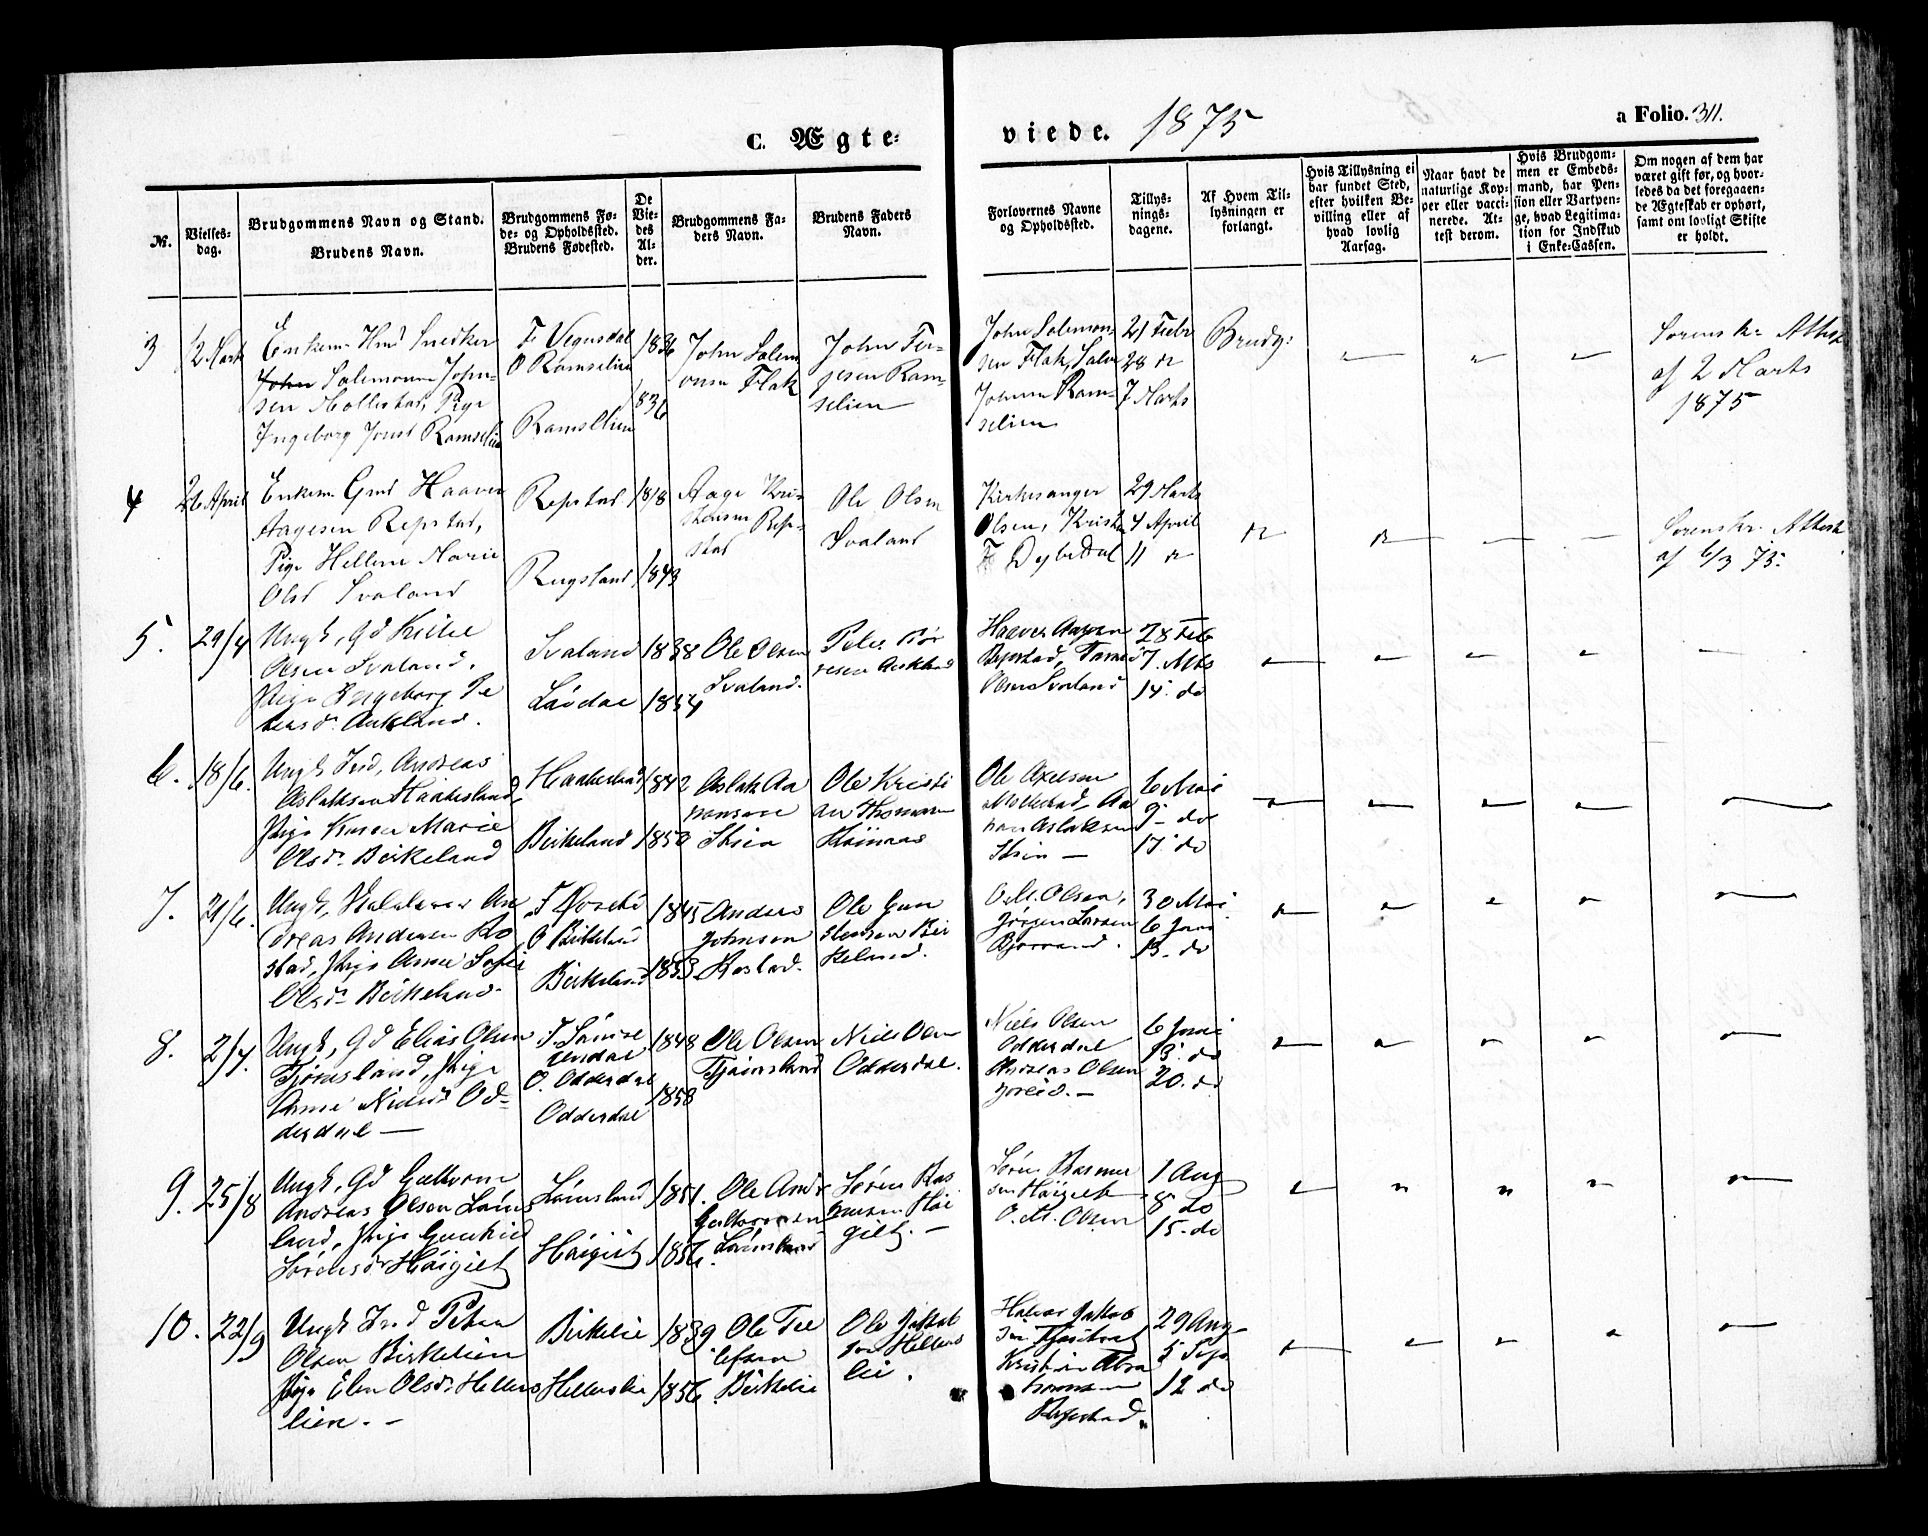 C. Ægte-
viede. 1875
a Folio. 311.
No.
Vielses-
dag.
Brudgommens Navn og Stand.
Brudens Navn.
Brudgommens Fø-
de- og Opholdssted.
Brudens Fødested.
De
Vie-
des
Al-
der.
Brudgommens Fa-
ders Navn.
Brudens Faders
Navn.
Forlovernes Navne
og Opholdssted.
Tillys-
nings-
dagene.
Af Hvem Til-
lysningen er
forlangt.
Hvis Tillysning ei
har fundet Sted,
efter hvilken Be-
villing eller af
hvad lovlig
Aarsag.
Naar havt de
naturlige Kop-
per eller vacci-
nerede. At-
test derom.
Hvis Brudgom-
men er Embeds-
mand, har Pen-
sion eller Vartpen-
ge, hvad Legitima-
tion for Indskud
i Enke-Cassen.
Om nogen af dem har
været gift før, og hvor-
ledes da det foregaaen-
de Ægteskab er ophørt,
samt om lovligt Skifte
er holdt.
3
12 Marts
Enkem. Hmd Snedker
John Salomon John-
sen Mollestad, Pige
Ingeborg Jonsd Ramselien
F Vegusdal
O Ramselien
Ramselien
1836
1836
John Salom
onsen Flak
John Ter-
jesen Ram-
selien
John Salomon-
sen Flak, Salve
Johnsen Ram-
selien
21 Febr
28 "
7 Marts
Brudg:
Sorenskr. Attest
af 2 Marts
1875
4
26 April
Enkem. Gmd Haaver
Aagesen Repstad,
Pige Hellene Marie
Olsd Svaland
Repstad
Rugsland
1818
1843
Aage Kris
tensen Rep-
stad
Ole Olsen
Svaland
Kirkesanger
Olsen, Kristen
F Dybedal
29 Marts
4 April
11 "
Sorenskr. Attest
af 6/3 75.
5.
29/4
Ungk, Gd Kittel
Olsen Svaland.
Pige Ingeborg Pe
tersdr. Aukland.
Svaland
Løvdal
1838
1854
Ole Olsen
Svaland.
Peder Tør
resen Aukland
Haaver Aagesen
Repstad, Tarald
Olsen Svaland
28 Feb
7. Mts
14. do
6.
18/6.
Ungk Ind, Andreas
Aslaksen Haabesland,
Pige Karen Marie
Olsdr. Birkeland
Haabesland
Birkeland
1842
1850
Aslak Aa
nonsen
Stien
Ole Kristi
an Thomasen
Høimnes
Ole Axelsen
Mollestad, Aa
non Aslaksen
Stien —
6 Mai
9 - do
17. do
7.
21/6.
Ungk, Valdemar An
dreas Andersen Ro
stad, Pige Anne Sofie
Olsdr Birkeland.
O Birkeland
Birkeland
1845
1853
Anders
Johnsen
Rostad.
Ole Gun
stensen Bir
keland.
O. M. Olsen,
Jørgen Larsen
Bjorvand.
30 Mai
6 Juni
13. do
8.
2/7.
Ungk, Gd Elias Olsen
Tjømsland, Pige
Anne Nielsd Od-
derdal —
O. Odderdal
Odderdal
1848
1858
Ole Olsen
Tjømsland
Niels Olsen
Odderdal.
Niels Olsen
Odderdal
Andreas Olsen
6 Juni
13. do
20. do
9.
25/8
Ungk, Gd Guttorm
Andreas Olsen Løms
land, Pige Gunhild
Sørensdr Høigilt
Lømsland
Høigilt
1851.
1856.
Ole Andr
Guttormsen
Lømsland
Søren Ras
musen Høi
gilt. —
Søren Rasmus
sen Høigilt
O. M. Olsen
1 Aug
8 do
15. do
10.
22/9
Ungk Ind Peter
Olsen Birkelien
Pige Elen Olsdr. Hellers
lien. —
Birkelie
Hellerslie
1839
1856.
Ole Tel
lefsen
Birkelie
Ole Jakob
sen Hellers
lie.
Halvor Jakob
sen
Kristian Abra
hamsen
Repstad.
29 Aug
5 Sept
12 do